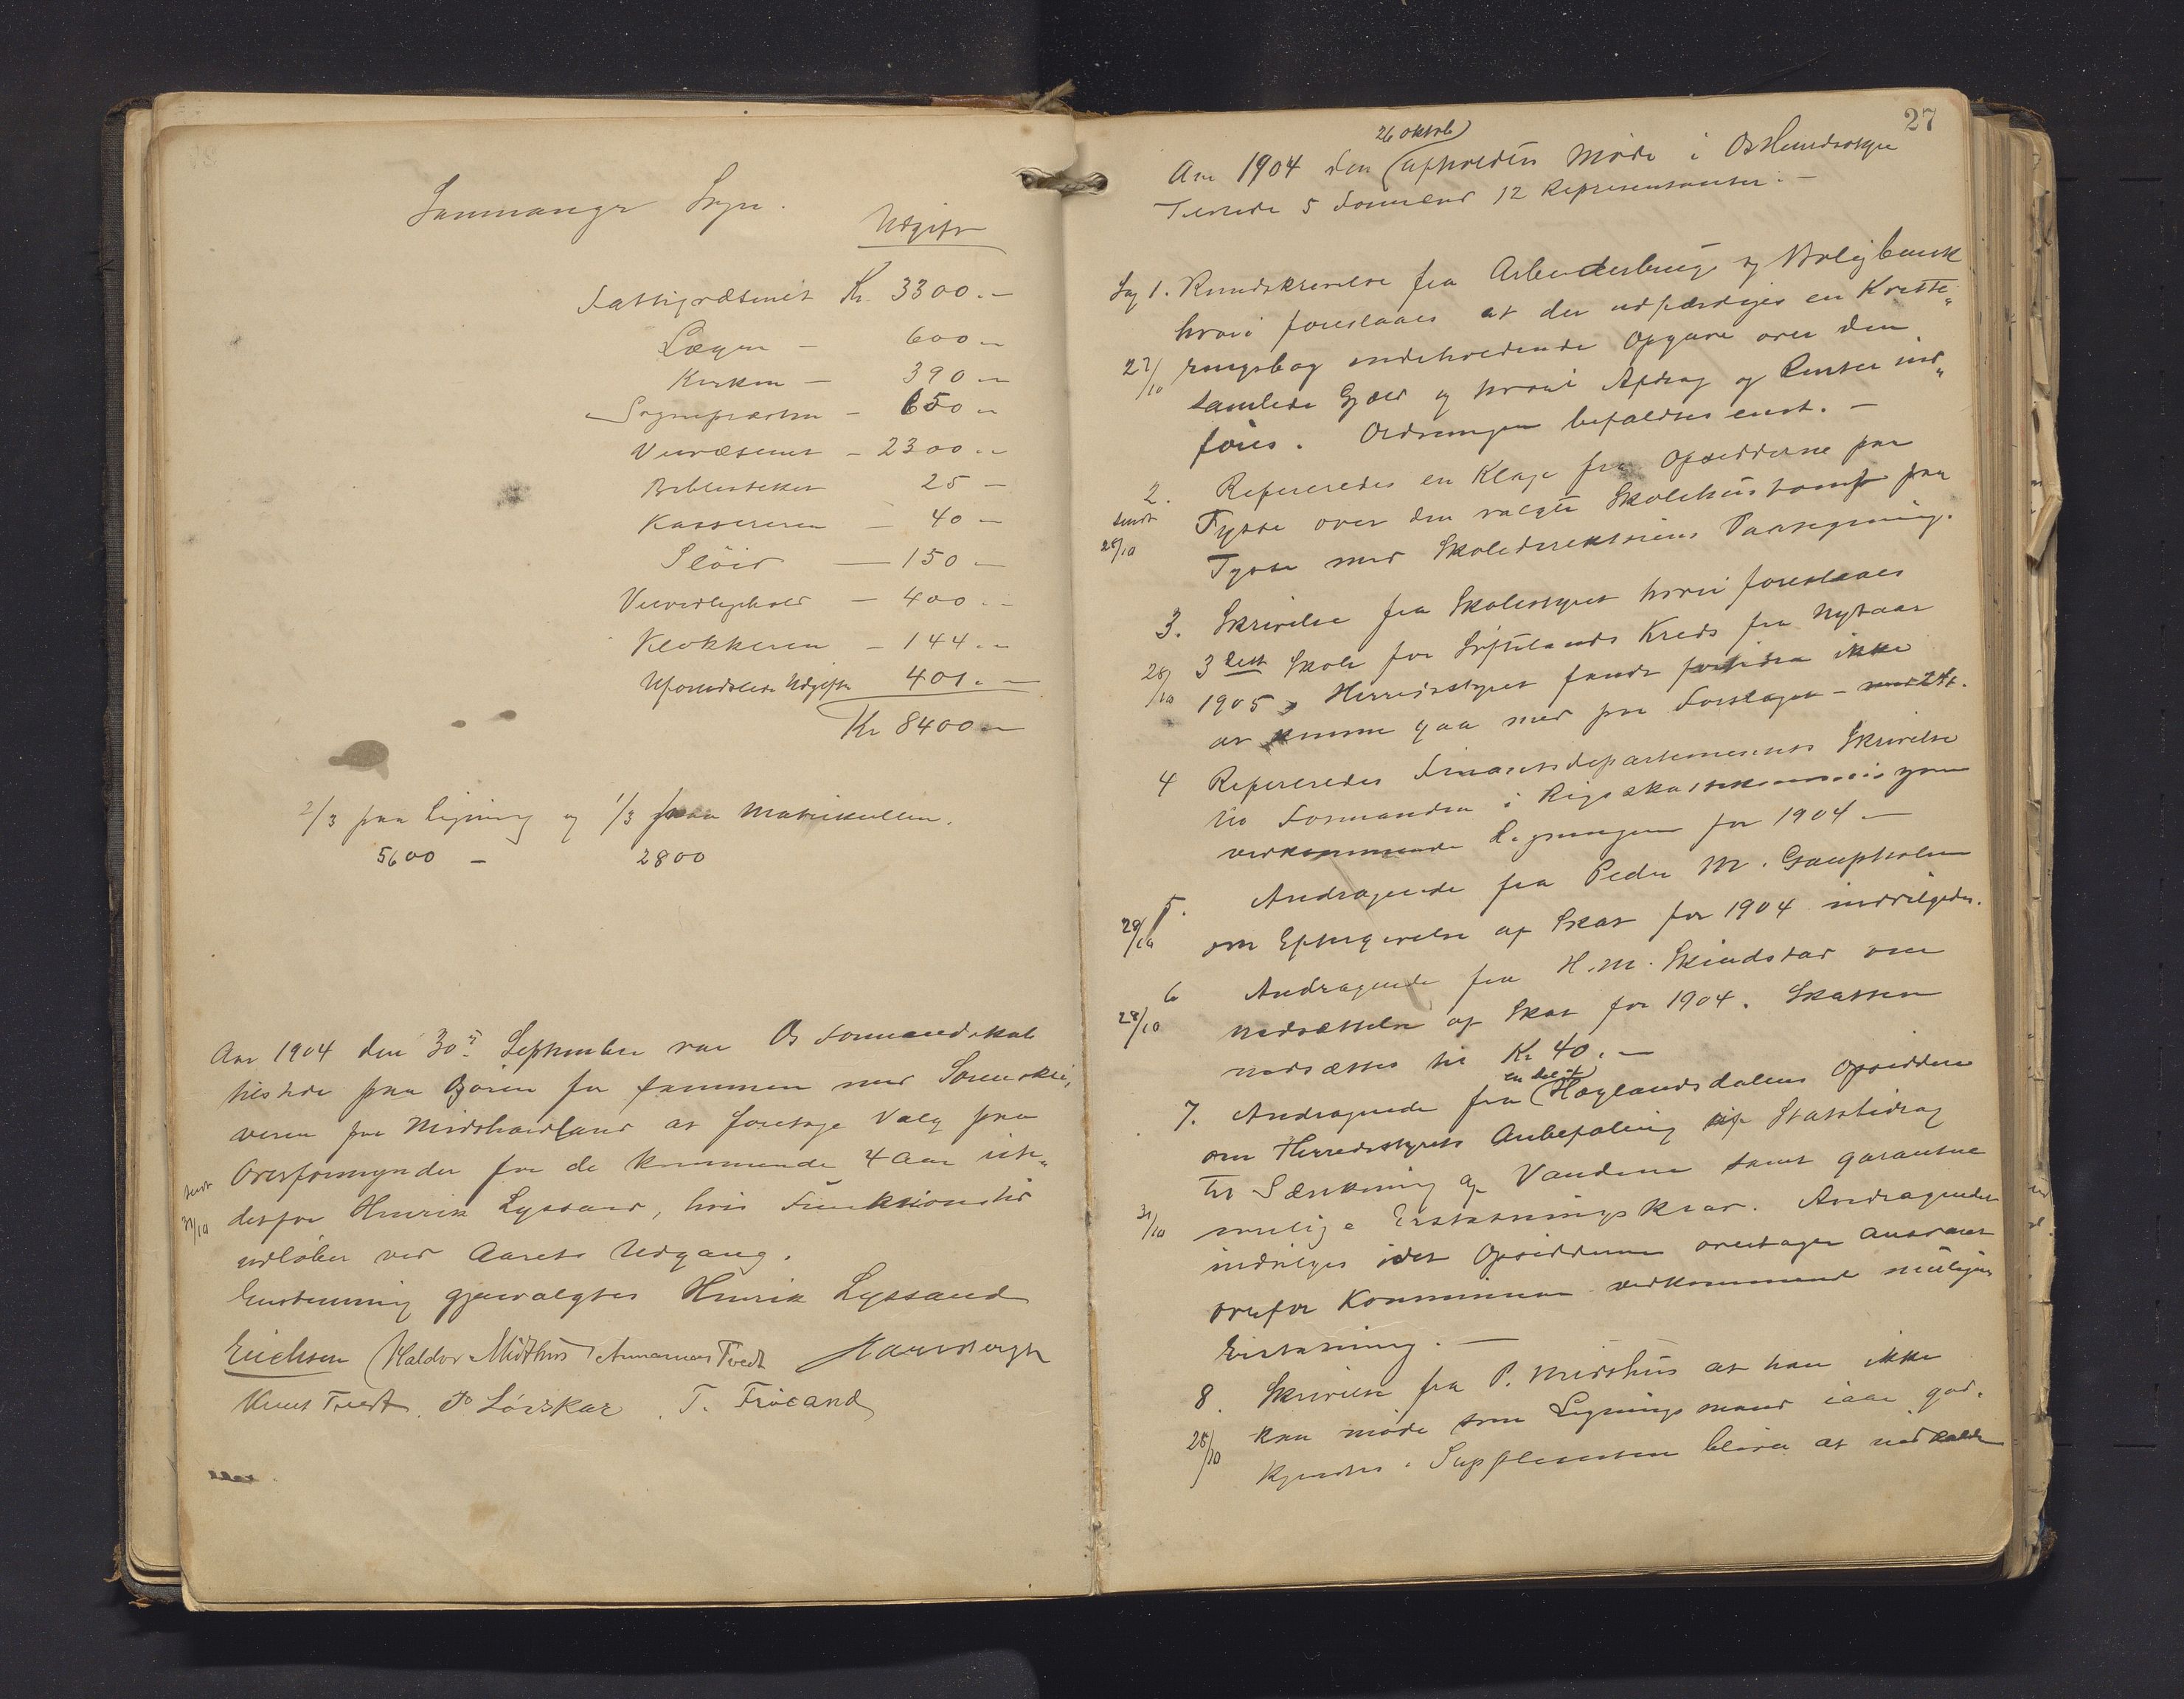 Sammanger Sogn.
Udgift
Fattigvæsenet Kr. 3300.-
Lægen - 600 -
Kirken - 390 -
Sognepræsten - 650 -
Veivæsenet - 2300 -
Bibliotheket 25 -
Kassereren - 40 -
Slöid - 150 -
Veivedligehold - 400.-
Klokkeren - 144.-
Uforudseede Udgifter 401.-
Kr 8400 -
2/3 paa Ligning og 1/3 paa Matrikullen.
5600 - 2800
Aar 1904 den 30te September var Os Formandskab
tilstede paa Osören for sammen med Sorenskri,
veren for Midthordland at foretage Valg paa
Overformynder for de kommende 4 Aar iste„
sendt
31/10
detfor Henrik Lyssand, hvis Funktionstid
udlöber ved Aarets Udgang.
Enstemmig gjenvalgtes Henrik Lyssand
Erichsen Haldor Midthus Tvedt
Knut Tvedt. T. Fröland
27
26 oktob
Aar 1904 den afholdtes Möde i Os Herredsstyre
Tilstede 5 Formænd 12 Repræsentanter. -
Sag 1. Rundskrivelse fra Arbeiderbrug og Boligbank
hvori foreslaaes at der udfærdiges en Kvitte„
27/10 ringsbog indeholdende Opgave over den
samlede Gjæld og hvori Afdrag og Renter ind„
föres. Ordningen befaldtes enst. -
2. Refereredes en Klage fra Opsidderne paa
sendt Tysse over den valgte Skolehustomt paa
28/10 Tysse med Skoledirektörens Paategning.
3. Skrivelse fra Skolestyret hvori foreslaaes
3delt Skole for Söftelands Kreds fra Nytaar
28/10 1905, Herredsstyret fandt fortiden ikke
at kunne gaa med paa Forslaget -
4 Refereredes Finantsdepartementets Skrivelse
til Formanden i Rigsskattekommisionen
vedkommende Ligningen for 1904 -
5. Andragende fra Peder M. Gaupholm
28/10 om Eftergivelse af Skat for 1904 indvilgedes.
6 Andragende fra H. M. Skindstad om
28/10 Nedsættelse af Skat for 1904. Skatten
nedsættes til Kr 40.-
en del af
7. Andragende fra Hæglandsdalens Opsiddere
om Herredsstyrets Anbefaling af Statsbidrag
til Sænkning af Vandene samt garantere
31/10 mulige Erstatningskrav. Andragendet
indvilges idet Opsidderne overtager Ansvaret
overfor Kommunen vedkommende muligens
Erstatning. -
8. Skrivelse fra P. Midthus at han ikke
kan möde som Ligningsmand iaar god„
28/10
kjendtes. Supplenten bliver at indkalde